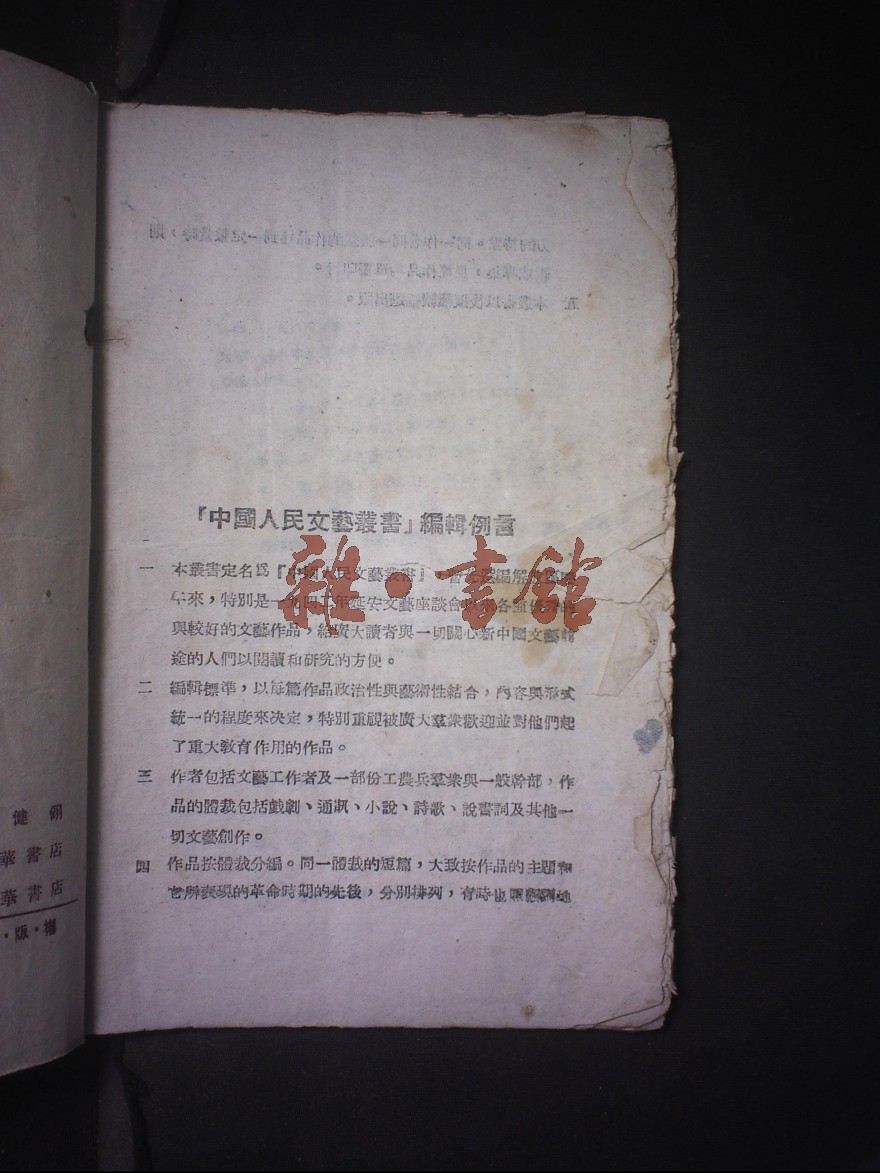 『中國人民文藝叢書』編輯例言
一 本叢書定名爲『中國人民文藝叢書』，
年來，特別是一九四二年延安文藝座談會以來各種優秀的
與較好的文藝作品，給廣大讀者與一切關心新中國文藝前
途的人們以閱讀和研究的方便。
二 編輯標準，以每篇作品政治性與藝術性結合，內容與形式
統一的程度來決定，特別重視被廣大羣衆歡迎並對他們起
了重大敎育作用的作品。
三 作者包括文藝工作者及一部份工農兵羣衆與一般幹部，作
品的體裁包括戲劇、通訊、小說、詩歌、說書詞及其他一
切文藝創作。
四 作品按體裁分編。同一體裁的短篇，大致按作品的主題和
它所表現的革命時期的先後，分別排列，有時也照顧到地
雜·書館
健 翎
華書店
華書店
·版·權